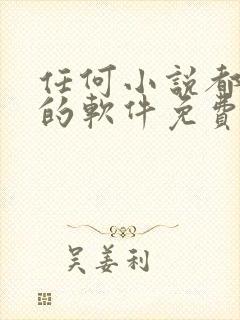 任何小説都
的軟件免費
吴姜利